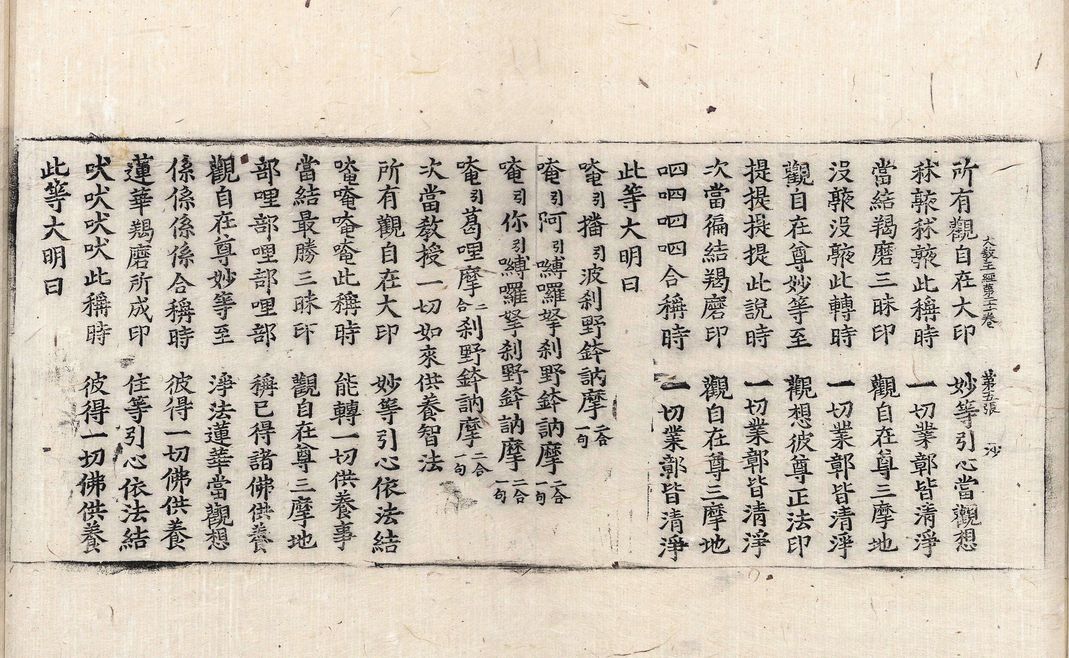 大教王經第二十卷　第五張　沙
所有觀自在大印　妙等引心當觀想
秣𨍏秣𨍏此稱時　一切業鄣皆清淨
當結羯磨三昧印　觀自在尊三摩地
沒𨍏沒𨍏此轉時　一切業鄣皆清淨
觀自在尊妙等至　觀想彼尊正法印
提提提提此說時　一切業鄣皆清淨
次當徧結羯磨印　觀自在尊三摩地
呬呬呬呬合稱時　一切業鄣皆清淨
此等大明曰
唵引播引波剎野鉢訥摩二合一句
唵引阿引嚩囉拏剎野鉢訥摩二合一句
唵引你引嚩囉拏剎野鉢訥摩二合一句
唵引葛哩摩二合剎野鉢訥摩二合一句
次當教授一切如來供養智法
所有觀自在大印　妙等引心依法結
唵唵唵唵此稱時　能轉一切供養事
當結最勝三昧印　觀自在尊三摩地
部哩部哩部哩部　稱已得諸佛供養
觀自在尊妙等至　淨法蓮華當觀想
係係係係合稱時　彼得一切佛供養
蓮華羯磨所成印　住等引心依法結
吠吠吠吠此稱時　彼得一切佛供養
此等大明曰